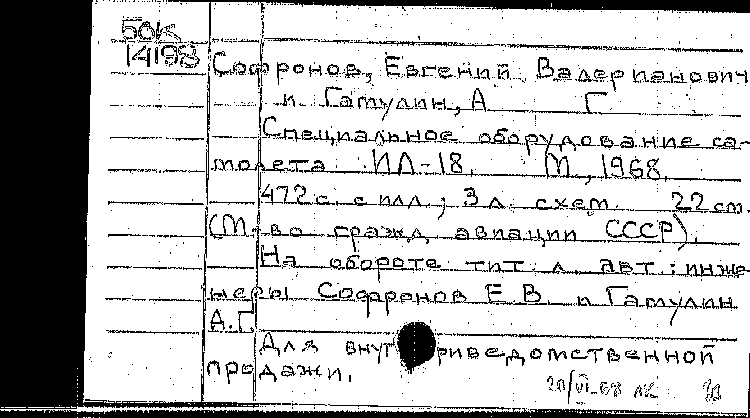 БОК
14198
Софронов, Евгений Валерианович
и Гатулин, А Г
Специальное оборудование са-
молета ИЛ-18. М., 1968.
472 с. с илл.; 3 л. схем. 22 см.
(М-во гражд. авиации СССР).
На обороте тит. л. авт.: инже-
неры Софронов Е. В. и Гатулин
А.Г.
Для внут риведомственной
продажи.
20/VI-68